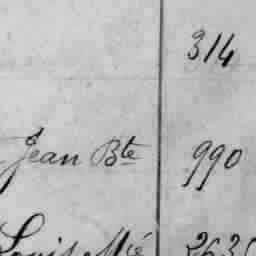 314
Jean Bte 990
Louis Mié 263